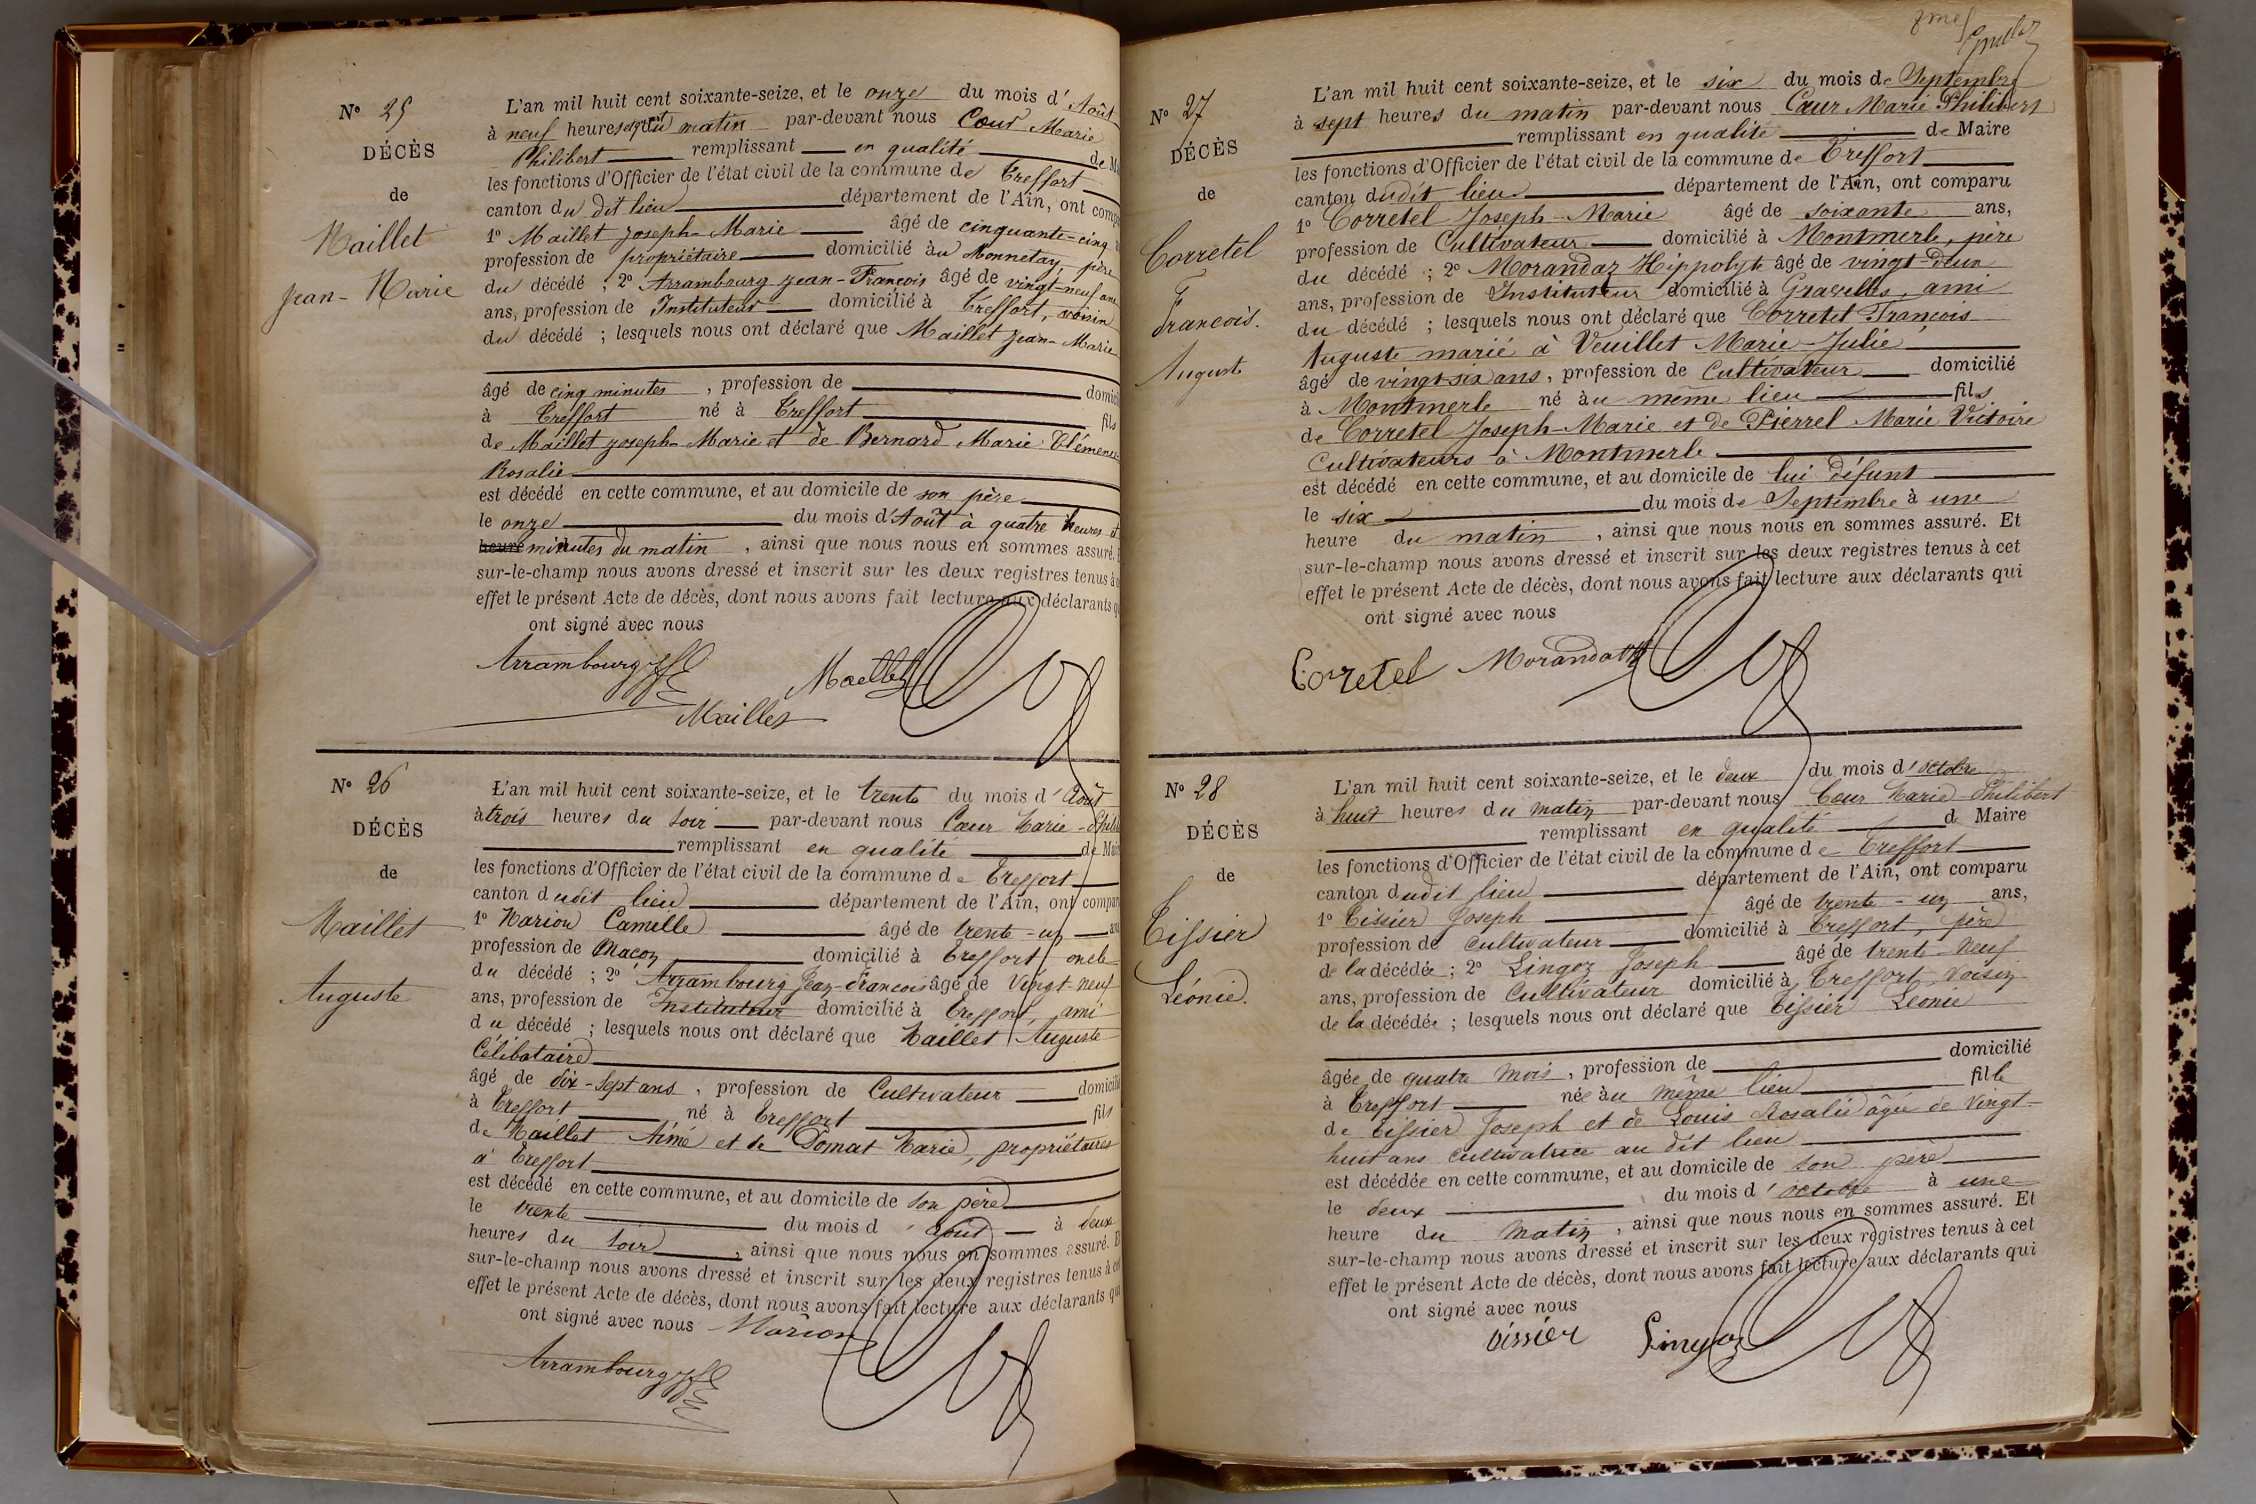 Nº 25
DÉCÈS
de
Maillet
Jean-Marie
L'an mil huit cent soixante-seize, et le onze du mois d'Août
à neuf heures du matin par-devant nous Cœur Marie
Philibert remplissant en qualité de
les fonctions d'Officier de l'état civil de la commune de Treffort
canton du dit lieu département de l'Ain, ont
1º Maillet Joseph-Marie âgé de cinquante-cinq
profession de propriétaire domicilié au Monnetay, père
du décédé ; 2º Arrambourg Jean-François âgé de vingt-neuf ans
ans, profession de Instituteur domicilié à Treffort, voisin
du décédé ; lesquels nous ont déclaré que Maillet Jean-Marie
âgé de cinq minutes, profession de
à Treffort né à Treffort fils
de Maillet Joseph-Marie et de Bernard Marie Clémence
Rosalie
est décédé en cette commune, et au domicile de son père
le onze du mois d'Août à quatre heures et
heure minutes du matin, ainsi que nous nous en sommes assuré.
sur-le-champ nous avons dressé et inscrit sur les deux registres tenus à
effet le présent Acte de décès, dont nous avons fait lecture aux déclarants
ont signé avec nous
Arrambourg Maillet
Maillet
Nº 26
DÉCÈS
de
Maillet
Auguste
L'an mil huit cent soixante-seize, et le trente du mois d'Août
à trois heures du soir par-devant nous Cœur Marie-
remplissant en qualité de
les fonctions d'Officier de l'état civil de la commune de Treffort
canton dudit lieu département de l'Ain, ont
1º Marion Camille âgé de trente-un
profession de Maçon domicilié à Treffort oncle
du décédé ; 2º Arrambourg Jean-François âgé de vingt-neuf
ans, profession de Instituteur domicilié à Treffort, ami
du décédé ; lesquels nous ont déclaré que Maillet Auguste
Célibataire
âgé de dix-sept ans, profession de Cultivateur
à Treffort né à Treffort fils
de Maillet Aimé et de Domat Marie, propriétaires
à Treffort
est décédé en cette commune, et au domicile de son père
le trente du mois d'août à deux
heures du soir, ainsi que nous nous en sommes assuré.
sur-le-champ nous avons dressé et inscrit sur les deux registres tenus à
effet le présent Acte de décès, dont nous avons fait lecture aux déclarants qui
ont signé avec nous Marion
Arrambourg
Nº 27
DÉCÈS
de
Corretel
François.
Auguste
L'an mil huit cent soixante-seize, et le six du mois de Septembre
à sept heures du matin par-devant nous Cœur Marie Philibert
remplissant en qualité de Maire
les fonctions d'Officier de l'état civil de la commune de Treffort
canton dudit lieu département de l'Ain, ont comparu
1º Corretel Joseph-Marie âgé de soixante ans,
profession de Cultivateur domicilié à Montmerle, père
du décédé ; 2º Morandaz Hippolyte âgé de vingt-deux
ans, profession de Instituteur domicilié à Gravelles, ami
du décédé ; lesquels nous ont déclaré que Corretel François
Auguste marié à Veuillet Marie-Julie
âgé de vingt-six ans, profession de Cultivateur domicilié
à Montmerle né au même lieu fils
de Corretel Joseph-Marie et de Pierrel Marie Victoire
Cultivateurs à Montmerle
est décédé en cette commune, et au domicile de lui défunt
le six du mois de Septembre à une
heure du matin, ainsi que nous nous en sommes assuré. Et
sur-le-champ nous avons dressé et inscrit sur les deux registres tenus à cet
effet le présent Acte de décès, dont nous avons fait lecture aux déclarants qui
ont signé avec nous
Corretel
Nº 28
DÉCÈS
de
Tissier
Léonie.
L'an mil huit cent soixante-seize, et le deux du mois d'octobre
à huit heures du matin par-devant nous Cœur Marie Philibert
remplissant en qualité de Maire
les fonctions d'Officier de l'état civil de la commune de Treffort
canton dudit lieu département de l'Ain, ont comparu
1º Tissier Joseph âgé de trente-un ans,
profession de cultivateur domicilié à Treffort, père
de la décédée ; 2º Lingoz Joseph âgé de trente-neuf
ans, profession de Cultivateur domicilié à Treffort voisin
de la décédée ; lesquels nous ont déclaré que Tissier Léonie
âgée de quatre mois, profession de domicilié
à Treffort née au même lieu fille
de Tissier Joseph et de Louis Rosalie âgée de vingt-
huit ans cultivatrice au dit lieu
est décédée en cette commune, et au domicile de son père
le deux du mois d'octobre à une
heure du matin, ainsi que nous nous en sommes assuré. Et
sur-le-champ nous avons dressé et inscrit sur les deux registres tenus à cet
effet le présent Acte de décès, dont nous avons fait lecture aux déclarants qui
ont signé avec nous
Tissier Lingoz